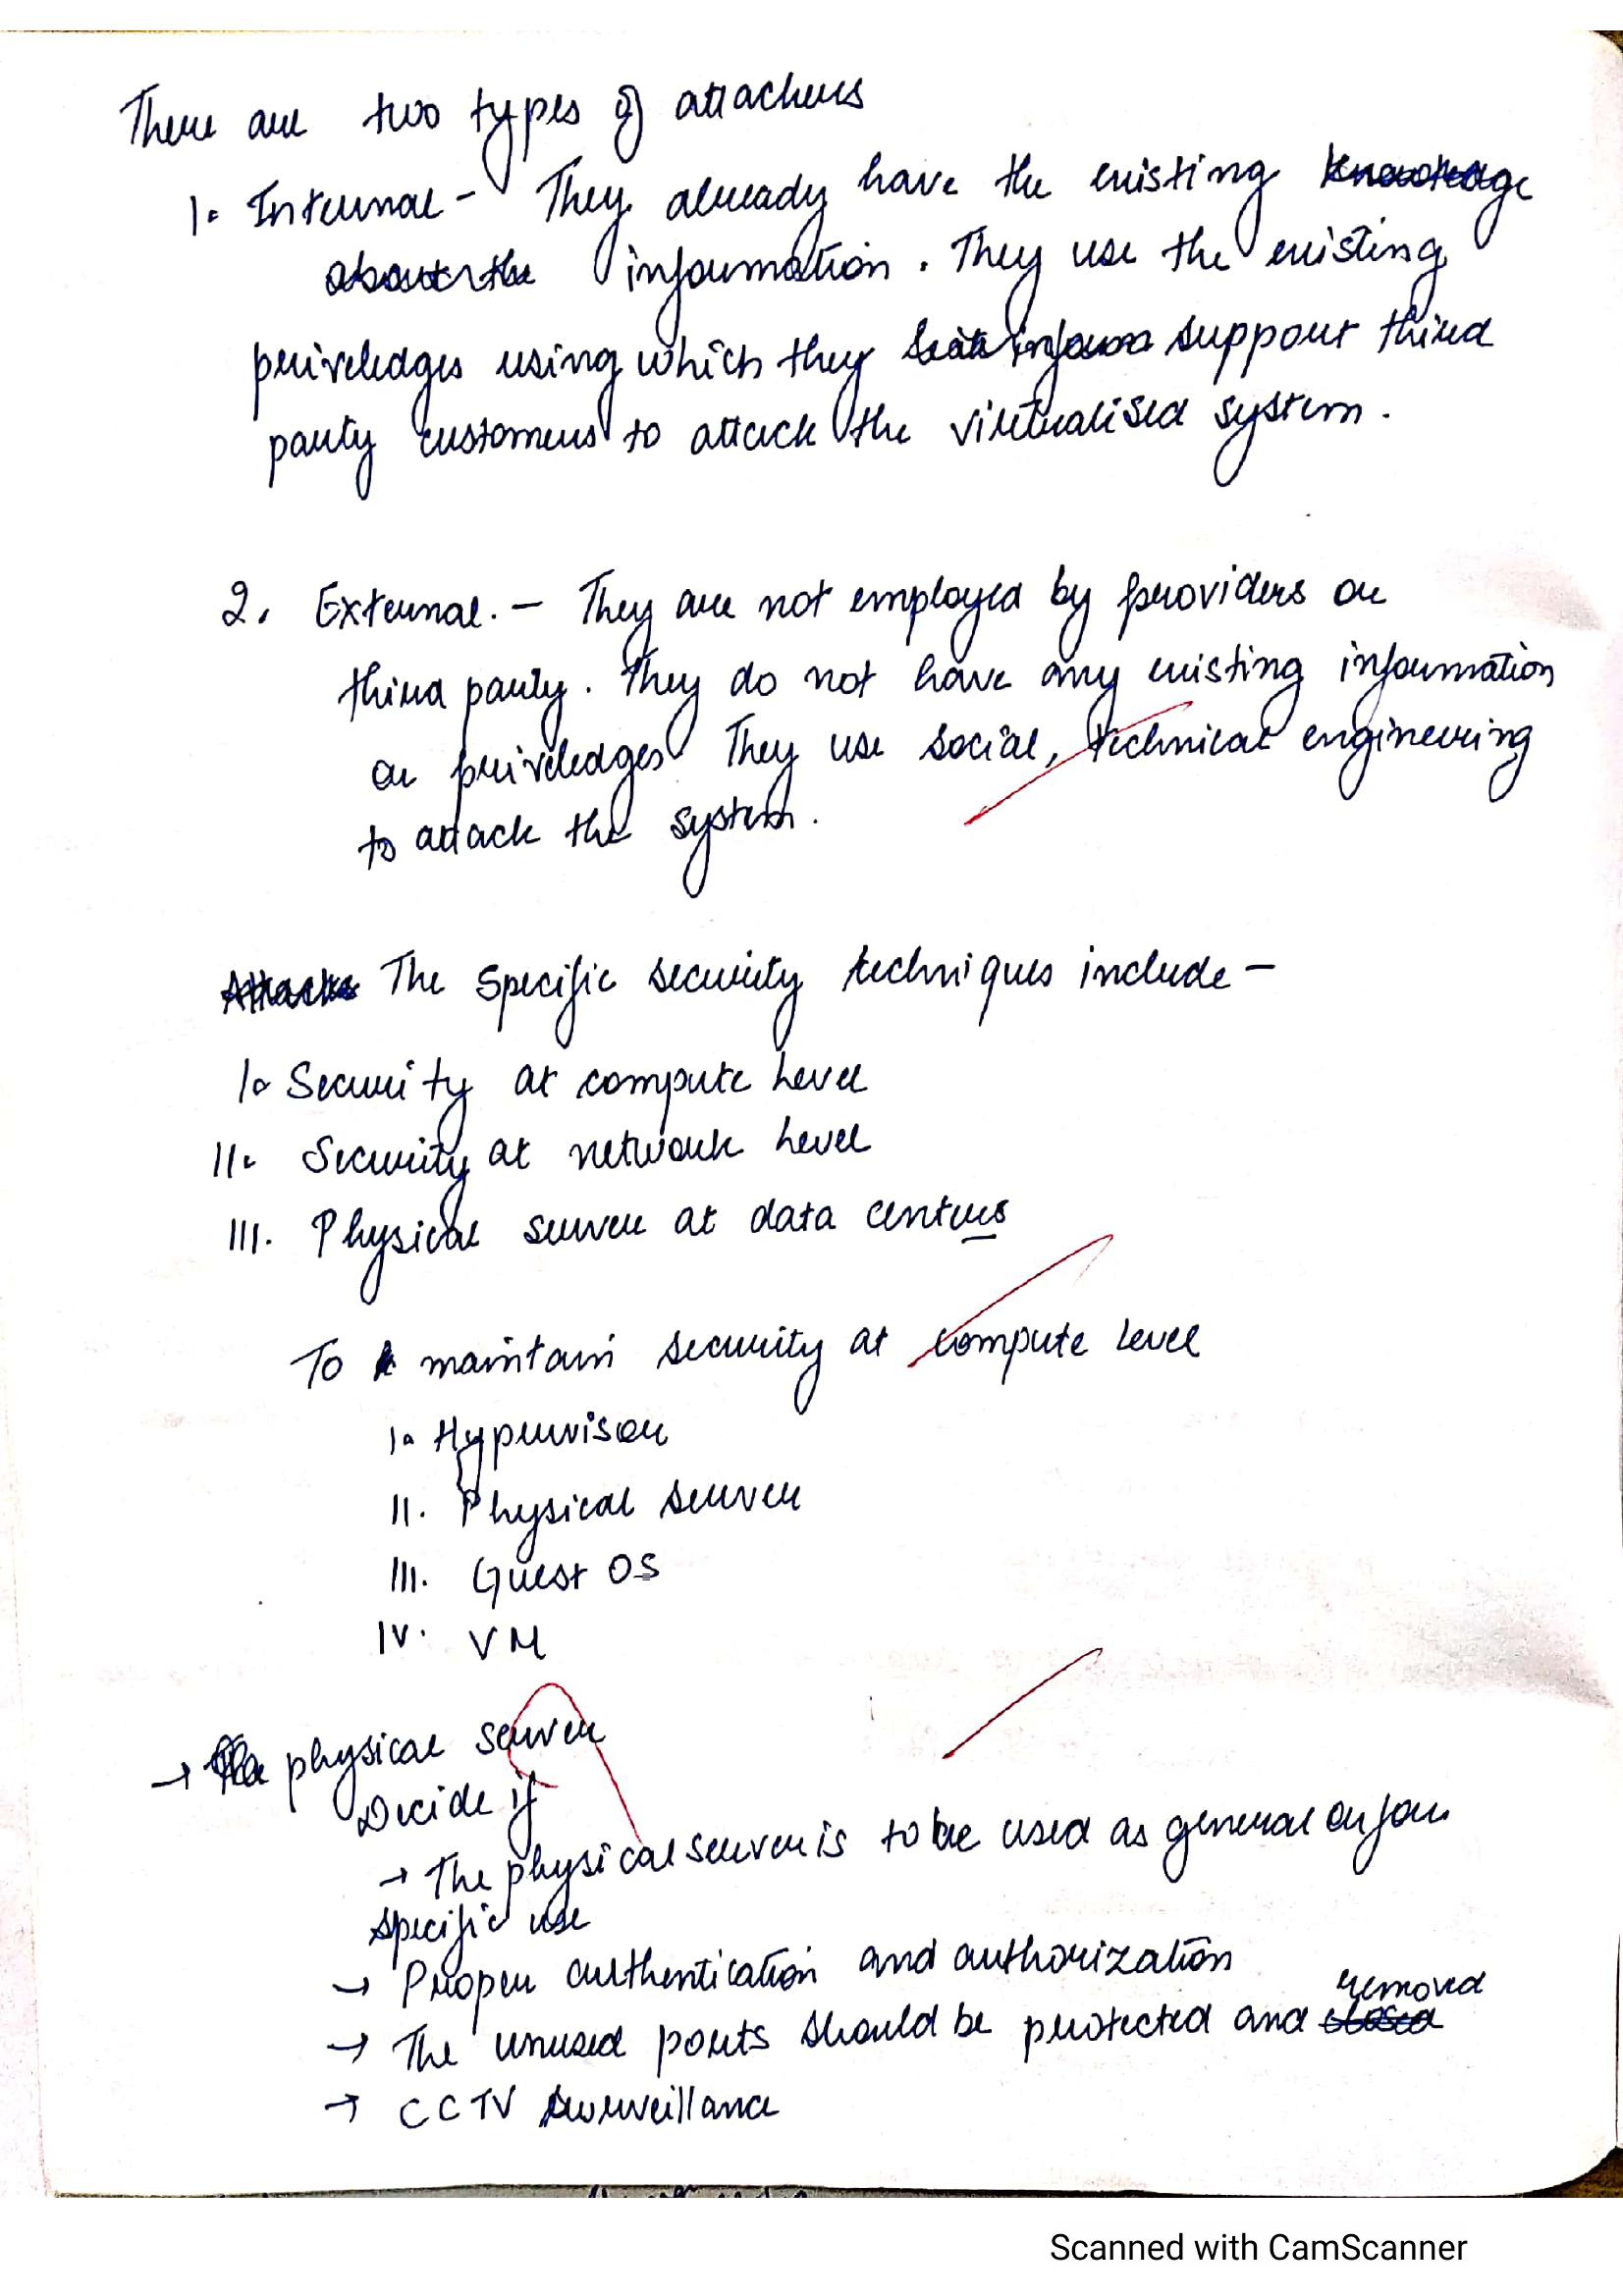 There are two types of attackers
1. Internal - They already have the existing knowledge
about the information. They use the existing
priveledges using which they support third
party customers to attack the virtualised system.
2. External. - They are not employed by providers or
third party. They do not have any existing information
or priveledges They use social, technical engineering
to attack the system.
Attacks The Specific security techniques include -
I. Security at compute level
II. Security at network level
III. Physical server at data centers
To maintain security at compute level
I. Hypervisor
II. Physical server
III. Guest OS
IV. VM
→ physical server
Decide if
→ The physical server is to be used as general or for
specific use
→ Proper authentication and authorization
removed
→ The unused ports should be protected and closed
→ CCTV surveillance
Scanned with CamScanner